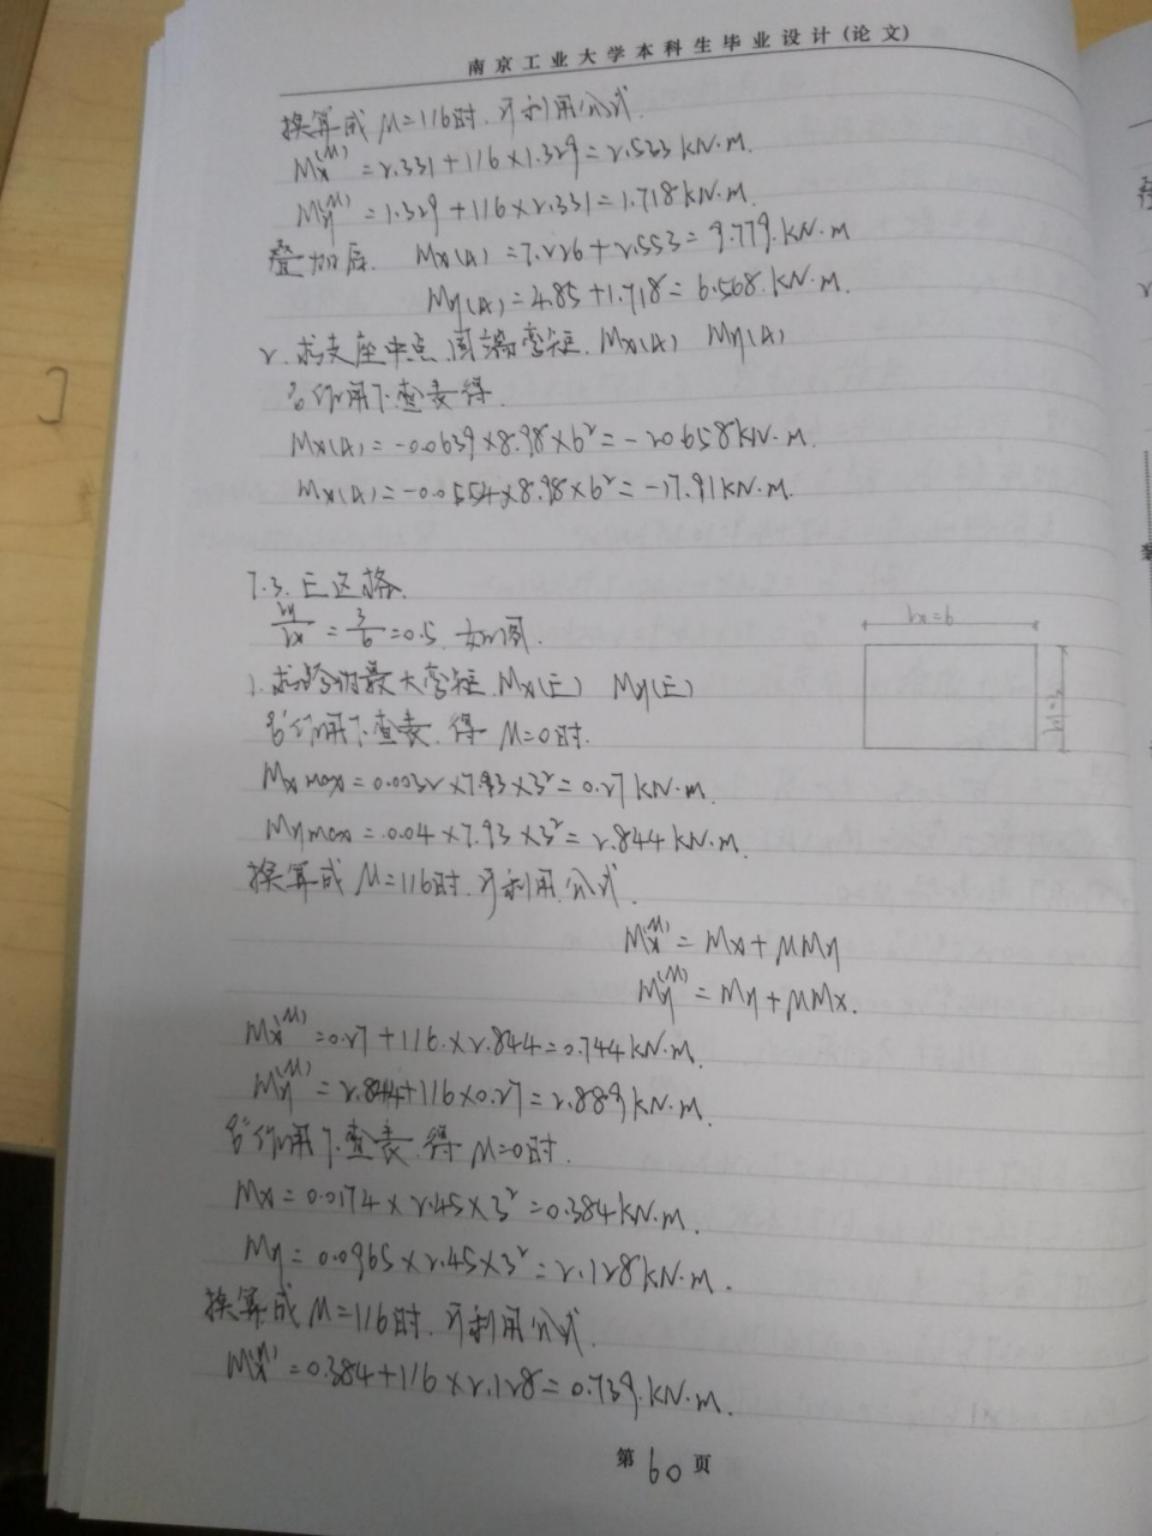 南京工业大学本科生毕业设计(论文)
换算成 μ=1/6时.可利用公式.
Mx(μ) = 2.331+1/6×1.329=2.533 kN·m.
My(μ) = 1.329+1/6×2.331=1.718 kN·m.
叠加后. Mx(A) =7.226+2.553=9.779.kN·m
My(A) =4.85+1.718=6.568.kN·m.
2.求支座中点固端弯矩. Mx(A) My(A)
作用下.查表得.
Mx(A) =-0.0639×8.98×6²=-20.658kN·m.
Mx(A)=-0.0554×8.98×6²=-17.91kN·m.
7.3. E区格.
ly/lx = 3/6 =0.5. 如图.
lx=6
ly=3
1.求跨内最大弯矩.Mx(E) My(E)
作用下.查表.得 μ=0时.
Mxmax=0.0032×7.93×3²=0.27 kN·m.
Mymax=0.04×7.93×3²=2.844 kN·m.
换算成 μ=1/6时.可利用.公式.
Mx(μ) = Mx+μMy
My(μ) = My+μMx.
Mx(μ) =0.27+1/6.×2.844=0.744 kN·m.
My(μ) = 2.844+1/6×0.27=2.889 kN·m.
作用下.查表.得 μ=0时.
Mx=0.0174×2.45×3²=0.384 kN·m.
My=0.0965×2.45×3²=2.128 kN·m.
换算成 μ=1/6时.可利用公式.
Mx(μ) =0.384+1/6×2.128=0.739.kN·m.
第 60 页